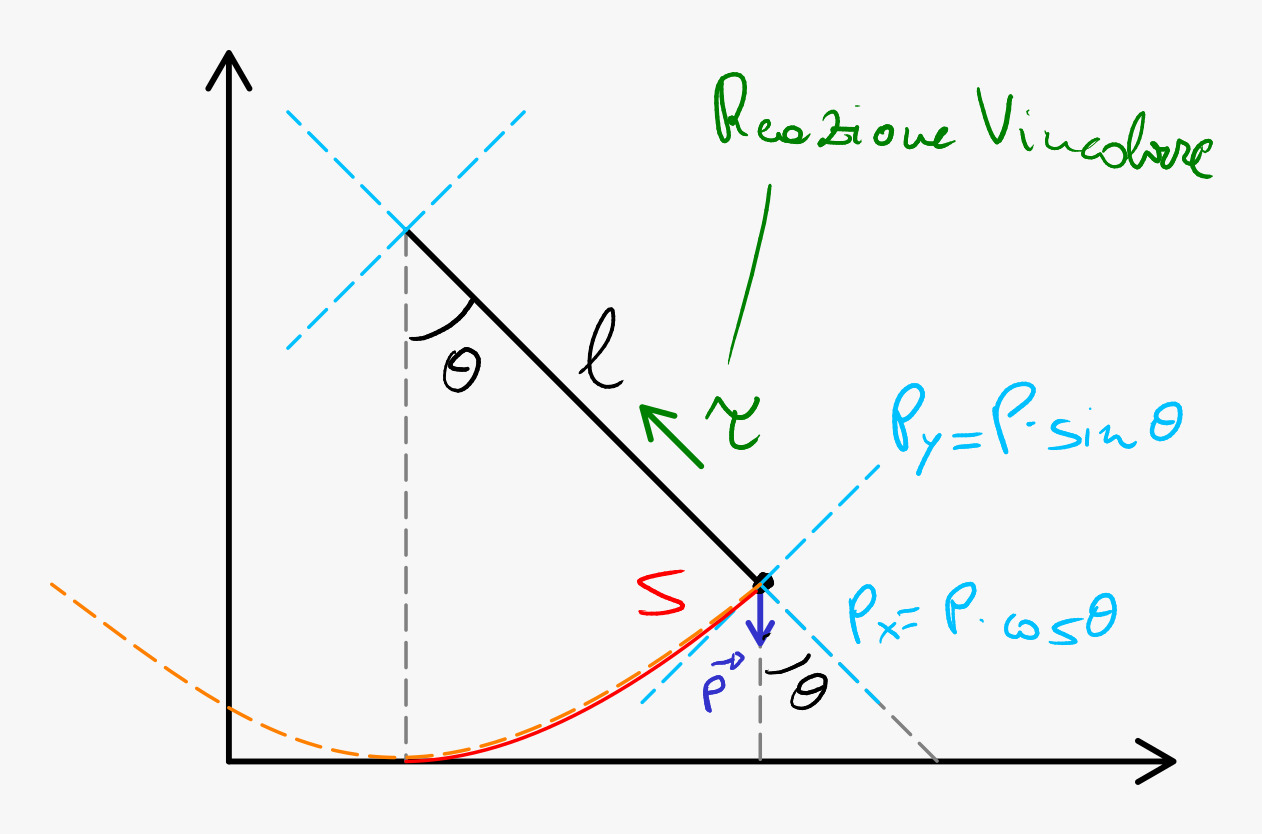 Reazione Vincolare
θ
l
τ
Py = P · sin θ
S
Px = P · cos θ
P⃗
θ